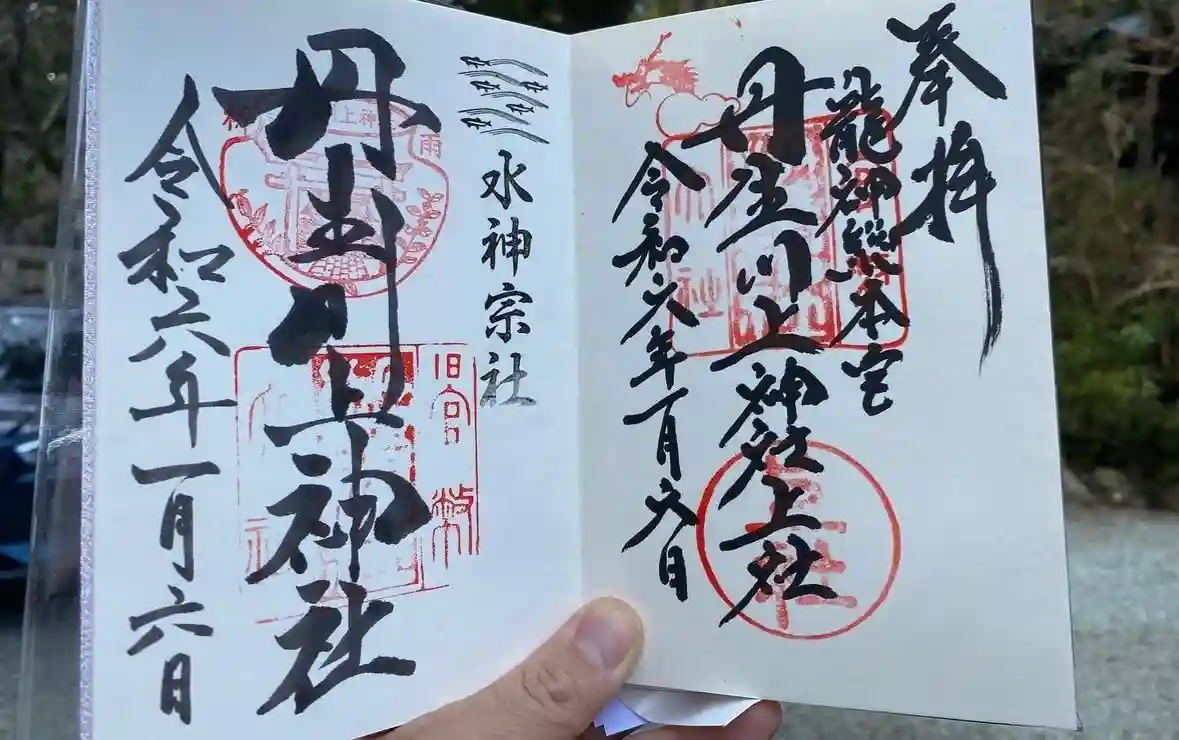 奉拝
龍神総本宮
丹生川上神社上社
令和六年一月六日
水神宗社
丹生川上神社
令和六年一月六日
旧官幣